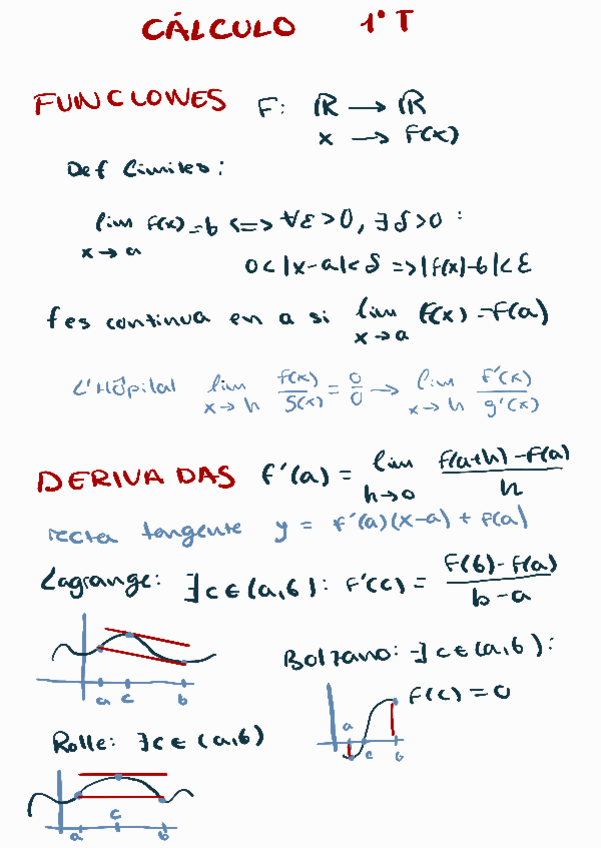 CÁLCULO 1º T
FUNCIONES F: ℝ → ℝ
x → F(x)
Def límites:
lim f(x) = b <=> ∀ε>0, ∃δ>0 :
x→a
0<|x-a|<δ => |f(x)-b|<ε
f es continua en a si lim f(x) = F(a)
x→a
L'Hôpital lim f(x)/g(x) = 0/0 → lim f'(x)/g'(x)
x→h x→h
DERIVADAS f'(a) = lim f(a+h)-f(a)/h
h→0
recta tangente y = f'(a)(x-a) + f(a)
Lagrange: ∃c∈(a,b): f'(c) = F(b)-f(a)/b-a
a c b
Bolzano: ∃c∈(a,b):
f(c) = 0
a c b
Rolle: ∃c∈(a,b)
a c b